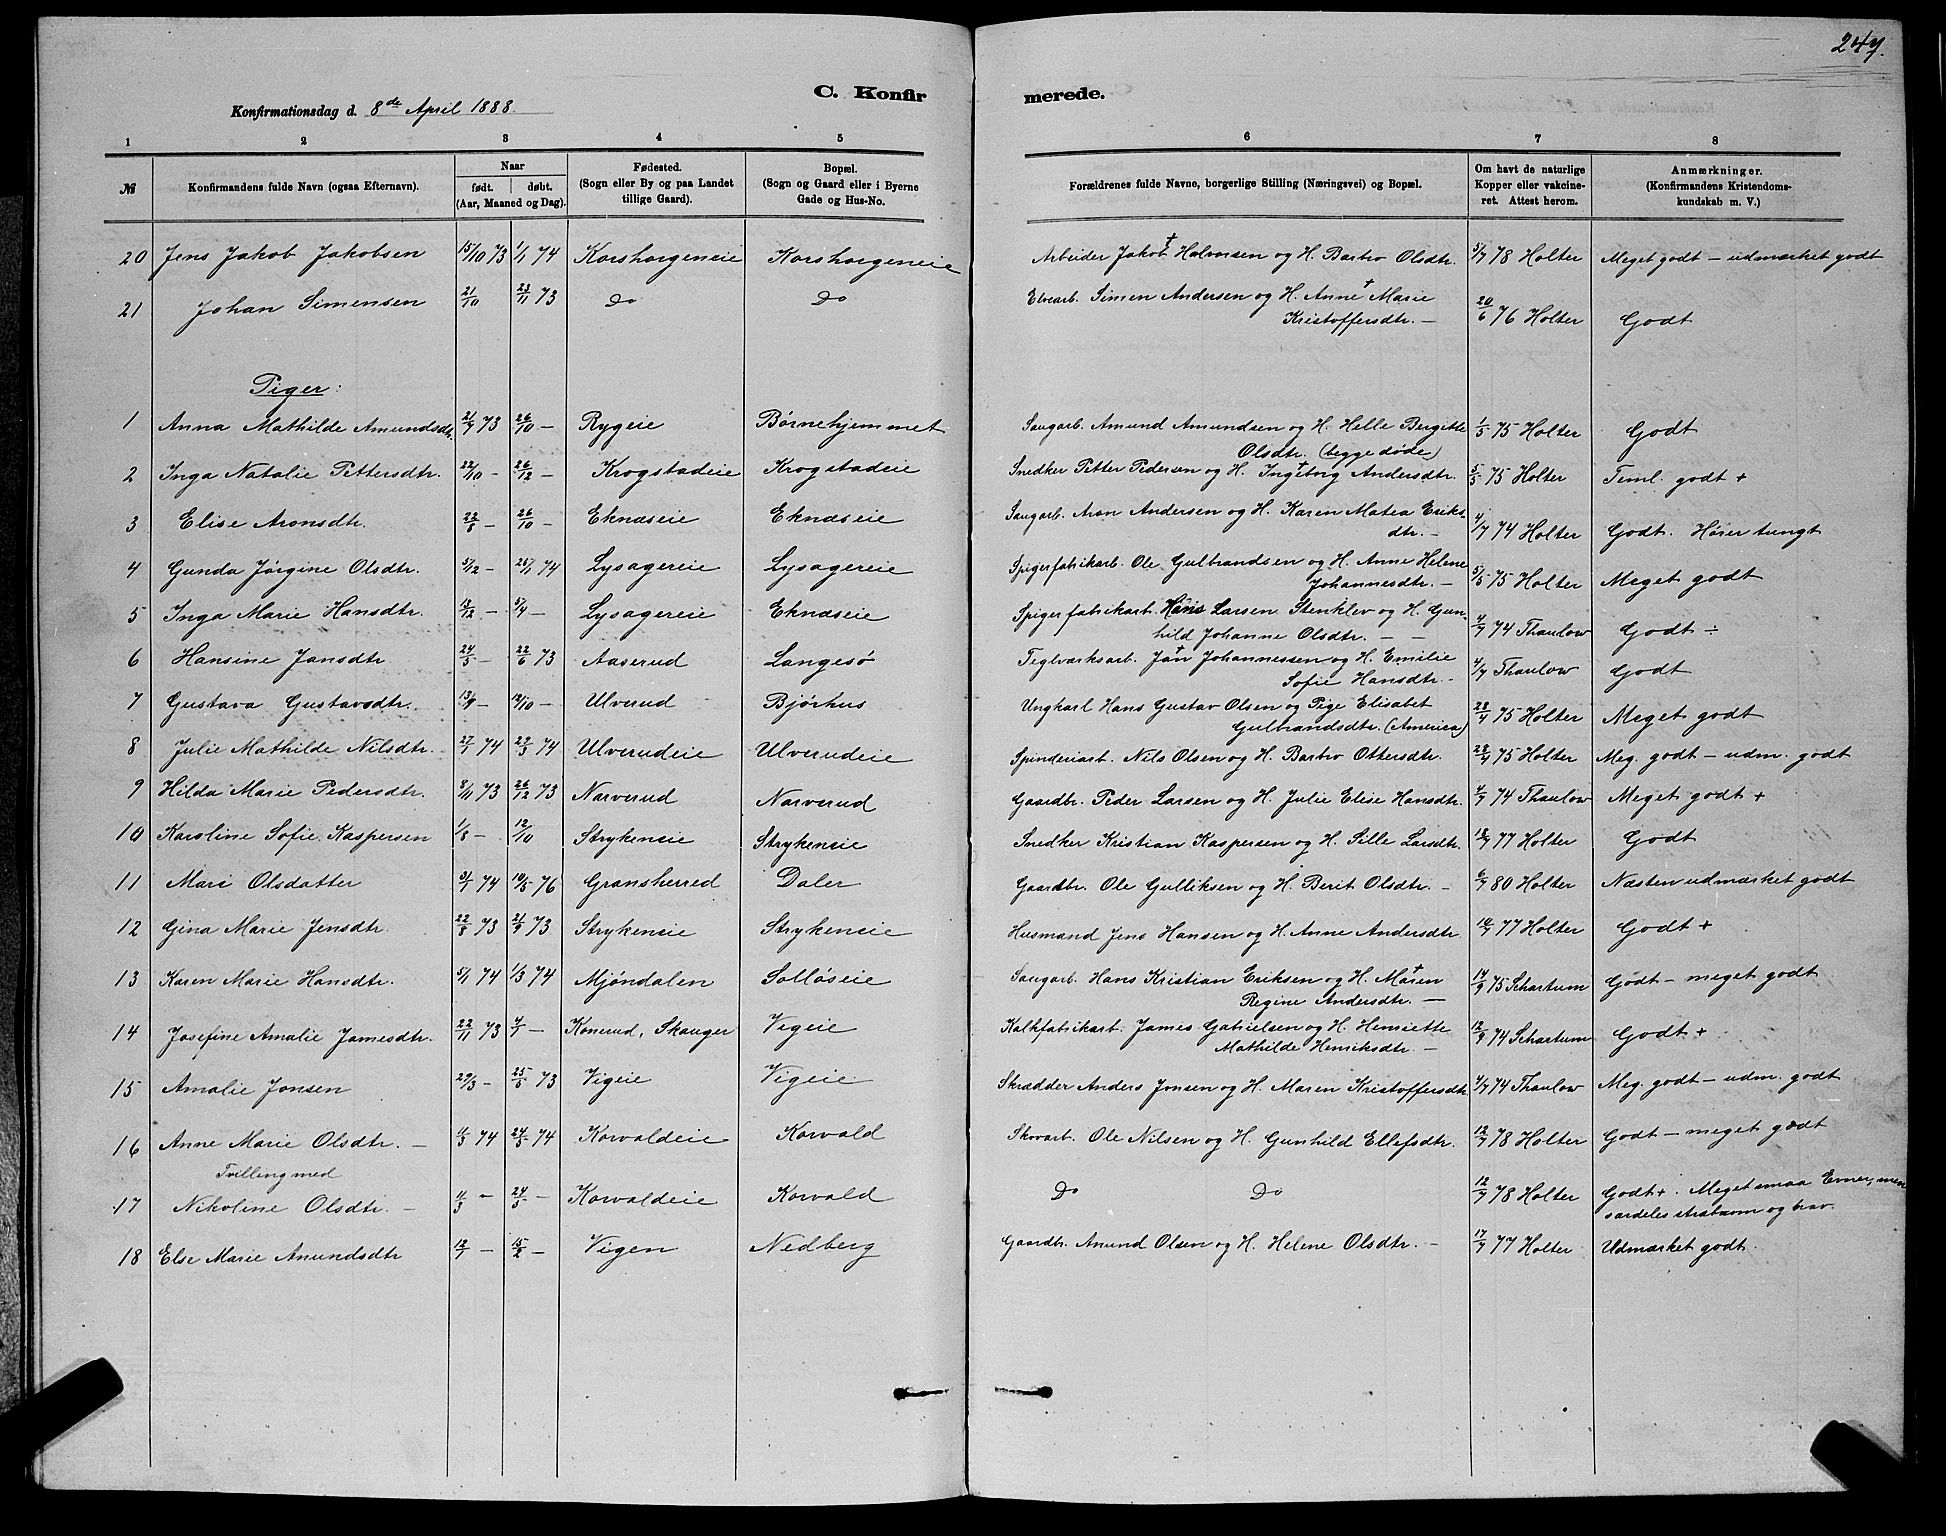 247.
C. Konfirmerede.
Konfirmationsdag d. 8de April 1888.
1 2 3 4 5 6 7 8
№ Konfirmandens fulde Navn (ogsaa Efternavn). Naar født. døbt. (Aar, Maaned og Dag). Fødested. (Sogn eller By og paa Landet tillige Gaard). Bopæl. (Sogn og Gaard eller i Byerne Gade og Hus-No. Forældrenes fulde Navne, borgerlige Stilling (Næringsvei) og Bopæl. Om havt de naturlige Kopper eller vakcineret. Attest herom. Anmærkninger. (Konfirmandens Kristendomskundskab m. V.)
20 Jens Jakob Jakobsen 15/10 73 1/1 74 Korshorgeneie Korshorgeneie Arbeider Jakob † Halvorsen og H. Barbro Olsdtr. 5/7 78 Holter Meget godt – udmærket godt
21 Johan Simensen 21/10 23/11 73 Do Do Elvearb. Simen Andersen og H. Anne † Marie
Kristoffersdtr. – 20/6 76 Holter Godt
Piger:
1 Anna Mathilde Amundsdtr. 21/7 73 26/10 – Rygeie Børnehjemmet Saugarb. Amund Amundsen og H. Helle Bergitte
Olsdtr. (begge døde) 1/5 75 Holter Godt
2 Inga Natalie Pettersdtr. 22/10 – 26/12 – Krogstadeie Krogstadeie Snedker Petter Pedersen og H. Ingebrig † Andersdtr. 5/5 75 Holter Teml. godt +
3 Elise Aronsdtr. 22/8 – 26/10 – Eknæseie Eknæseie Saugarb. Aron Andersen og H. Karen Matea Eriks-
dtr. – 4/7 74 Holter Godt. Hører tungt
4 Gunda Jørgine Olsdtr. 5/12 – 25/1 74 Lysagereie Lysagereie Spigerfabrikarb. Ole Gulbrandsen og H. Anne Helene
Johannesdtr. – 5/5 75 Holter Meget godt
5 Inga Marie Hansdtr. 13/12 – 5/4 – Lysagereie Eknæseie Spigerfabrikarb. Hans Larsen Stenklev og H. Gun-
hild Johanne Olsdtr. – – 4/7 74 Thaulow Godt ÷
6 Hansine Jansdtr 24/5 – 22/6 73 Aaserud Langesø Teglværksarb. Jan † Johannessen og H. Emilie
Sofie Hansdtr. – 4/7 Thaulow Godt
7 Gustava Gustavsdtr. 13/9 – 12/10 – Ulverud Bjørhus Ungkarl Hans Gustav Olsen og Pige Elisabet
Gulbrandsdtr. (America) 28/4 75 Holter Meget godt
8 Julie Mathilde Nilsdtr. 27/1 74 29/3 74 Ulverudeie Ulverudeie Spinderiarb. Nils Olsen og H. Barbro Ottersdtr. 28/4 75 Holter Meg. godt – udm. godt
9 Hilda Marie Pedersdtr. 8/11 73 26/12 73 Narverud Narverud Gaardbr. Peder Larsen og H. Julie Elise Hansdtr. 4/7 74 Thaulow Meget godt +
10 Karoline Sofie Kaspersen 1/8 – 12/10 Strykeneie Strykeneie Snedker Kristian Kaspersen og H. Sille Larsdtr. 18/7 77 Holter Godt
11 Mari Olsdatter 31/1 74 10/5 76 Gransherred Daler Gaardbr. Ole Gulliksen og H. Berit Olsdtr. – 6/7 80 Holter Næsten udmærket godt
12 Gina Marie Jensdtr. 22/8 73 21/9 73 Strykeneie Strykeneie Husmand Jens Hansen og H. Anne Andersdtr. 10/7 77 Holter Godt +
13 Karen Marie Hansdtr. 5/1 74 1/3 74 Mjøndalen Solløseie Saugarb. Hans Kristian Eriksen og H. Maren †
Regine Andersdtr. – 14/9 75 Schartum Godt – meget godt
14 Josefine Amalie Jamesdtr. 22/11 73 4/1 – Konerud, Skauger Vigeie Kalkfabrikarb. James Gabrielsen og H. Henriette
Mathilde Henriksdtr. – 12/9 74 Schartum Godt +
15 Amalie Jonsen 29/3 – 25/5 73 Vigeie Vigeie Skrædder Anders Jonsen og H. Maren Kristoffersdtr 4/7 74 Thaulow Meg. godt – udm. godt
16 Anne Marie Olsdtr. – 11/3 74 24/5 74 Korvaldeie Korvald Skovarb. Ole Nilsen og H. Gunhild Ellefsdtr. 12/7 78 Holter Godt – meget godt
Tvilling med
17 Nikoline Olsdtr. – 11/3 – 24/5 – Korvaldeie Korvald Do Do 12/7 78 Holter Godt +. Meget smaa Evner, men
særdeles stræbsom og brav.
18 Else Marie Anundsdtr 12/1 – 15/2 – Vigen Nedberg Gaardbr. Anund Olsen og H. Helene Olsdtr. – 17/7 77 Holter Udmærket godt.